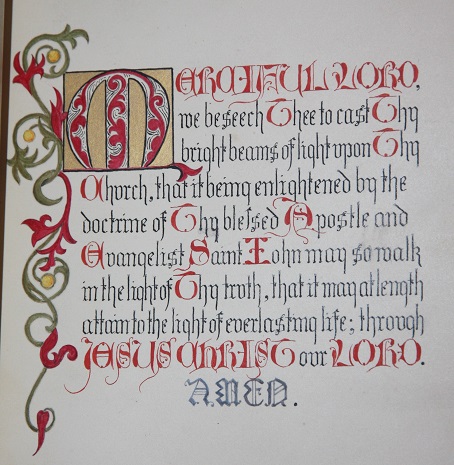 MERCIFUL LORD,
we beseech Thee to cast Thy
bright beams of light upon Thy
Church, that it being enlightened by the
doctrine of Thy blessed Apostle and
Evangelist Saint John may so walk
in the light of Thy truth, that it may at length
attain to the light of everlasting life; through
JESUS CHRIST our LORD.
AMEN.